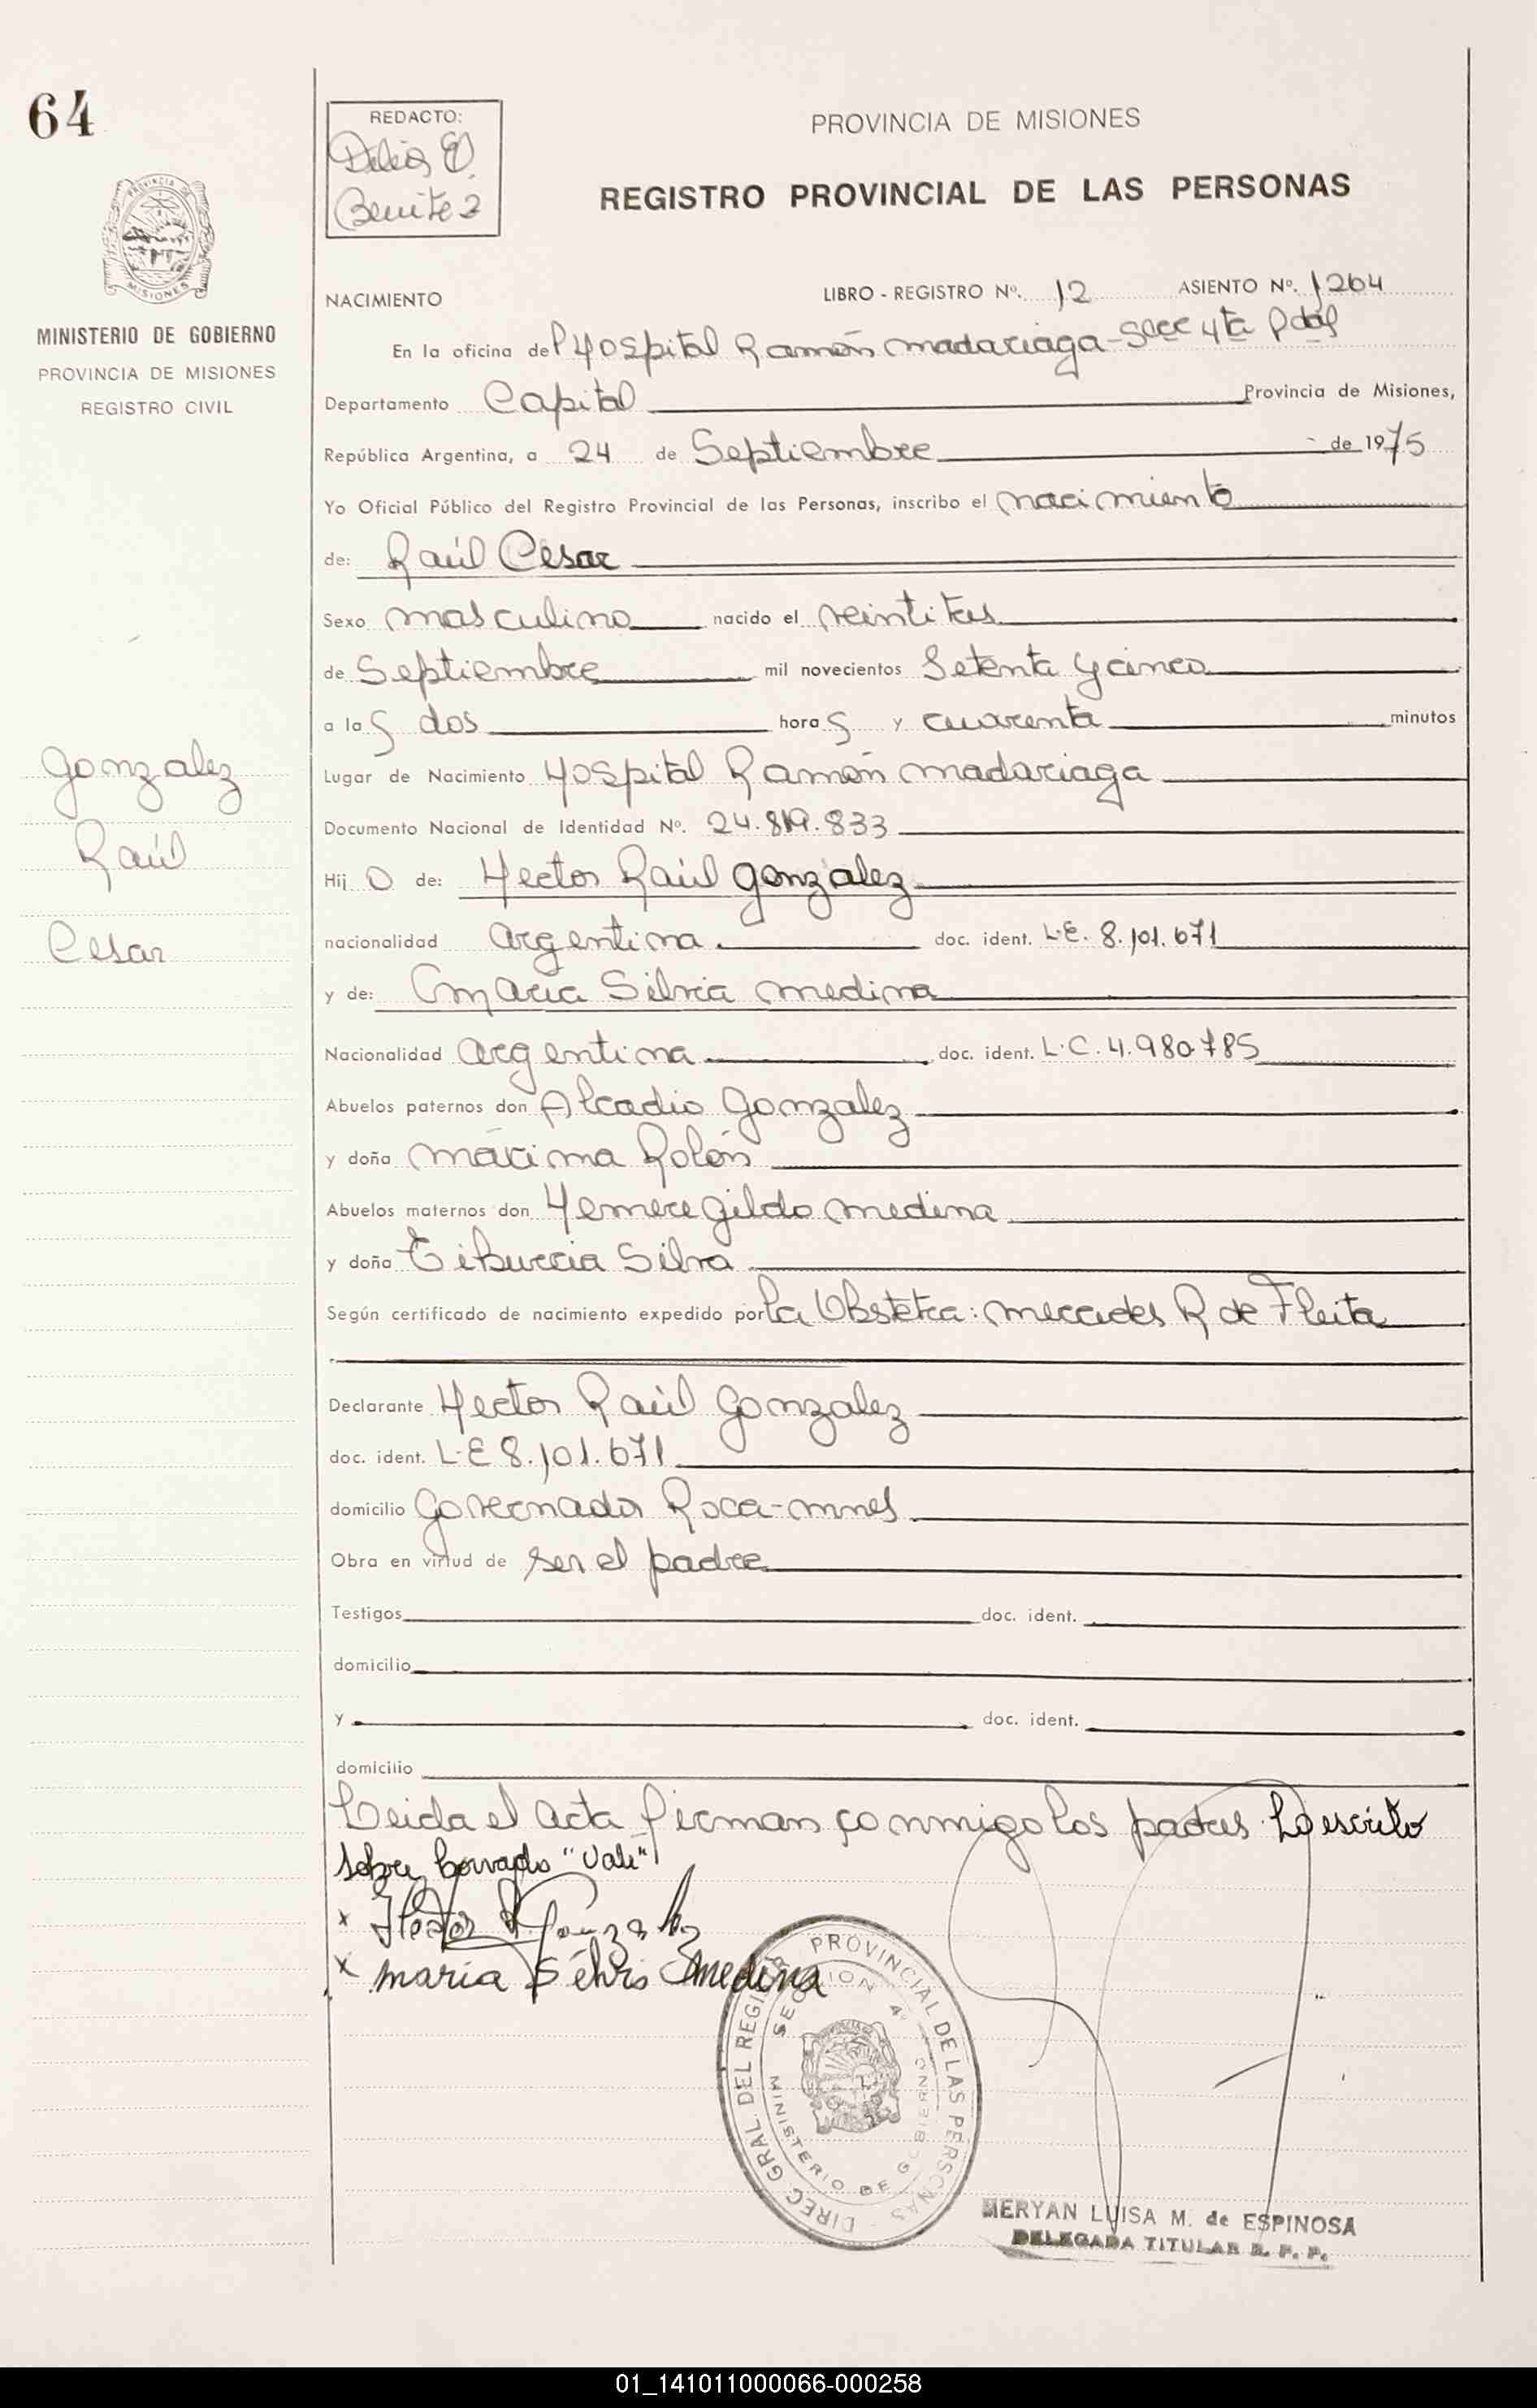 64
REDACTO:
Delia E.
Benitez
PROVINCIA DE MISIONES
REGISTRO PROVINCIAL DE LAS PERSONAS
PROVINCIA DE
MISIONES
MINISTERIO DE GOBIERNO
PROVINCIA DE MISIONES
REGISTRO CIVIL
Gonzalez
Raúl
Cesar
NACIMIENTO LIBRO - REGISTRO Nº. 12 ASIENTO Nº. 1264
En la oficina del Hospital Ramón Madariaga - Secc 4ta Pdas
Departamento Capital Provincia de Misiones,
República Argentina, a 24 de Septiembre de 1975
Yo Oficial Público del Registro Provincial de las Personas, inscribo el nacimiento
de: Raúl Cesar
Sexo masculino nacido el veintitres
de Septiembre mil novecientos Setenta y cinco
a las dos horas y cuarenta minutos
Lugar de Nacimiento Hospital Ramón Madariaga
Documento Nacional de Identidad Nº. 24.819.833
Hijo de: Hector Raúl Gonzalez
nacionalidad argentina. doc. ident. L.E. 8.101.671
y de: Maria Silvia Medina
Nacionalidad argentina doc. ident. L.C. 4.980.785
Abuelos paternos don Alcadio Gonzalez
y doña Máxima Rolón
Abuelos maternos don Hermeregildo Medina
y doña Tiburcia Silva
Según certificado de nacimiento expedido por la Obstetra: Mercedes R de Fleita
Declarante Hector Raúl Gonzalez
doc. ident. L.E 8.101.671
domicilio Governador Roca - Mnes
Obra en virtud de ser el padre
Testigos doc. ident.
domicilio
y doc. ident.
domicilio
Leida el acta firman conmigo los padres. Lo escrito
sobre borrado "Vale"
x Hector R Gonzalez
x maria Silvia Medina
DIREC. GRAL. DEL REGISTRO PROVINCIAL DE LAS PERSONAS
SECCION 4º
MINISTERIO DE GOBIERNO
MERYAN LUISA M. de ESPINOSA
DELEGADA TITULAR R. P. P.
01_141011000066-000258